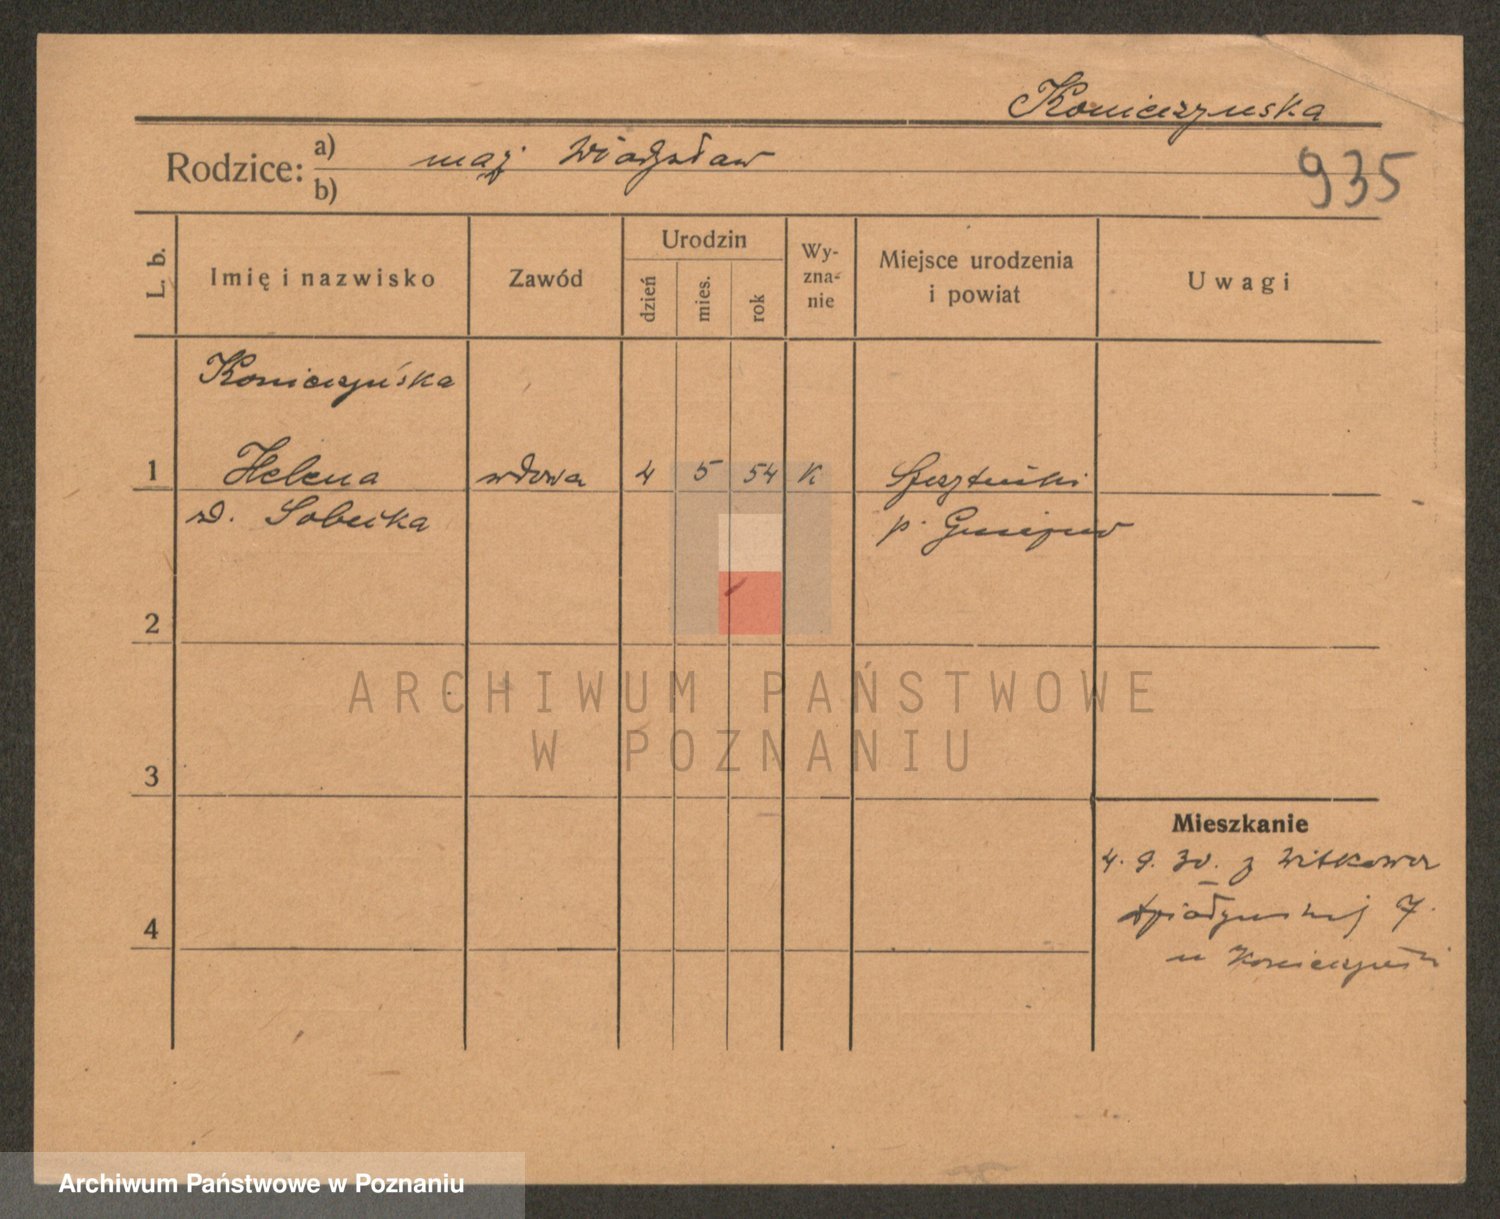 Konieczynska
Rodzice: a) mąż Władysław
b)
935
L. b.
Imię i nazwisko
Zawód
Urodzin
dzień
mies.
rok
Wy-
zna-
nie
Miejsce urodzenia
i powiat
Uwagi
Konieczyńska
1 Helena wdowa 4 5 54 k
d. Sobecka p.
2
3
4
Mieszkanie
4. 9. 30. z Witkowa
7.
u Konieczyński
ARCHIWUM PAŃSTWOWE
W POZNANIU
Archiwum Państwowe w Poznaniu